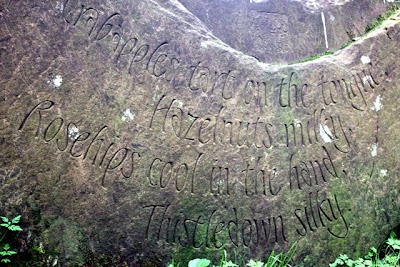 Crabapples tart on the tongue,
Hazelnuts milky,
Rosehips cool in the hand,
Thistledown silky.